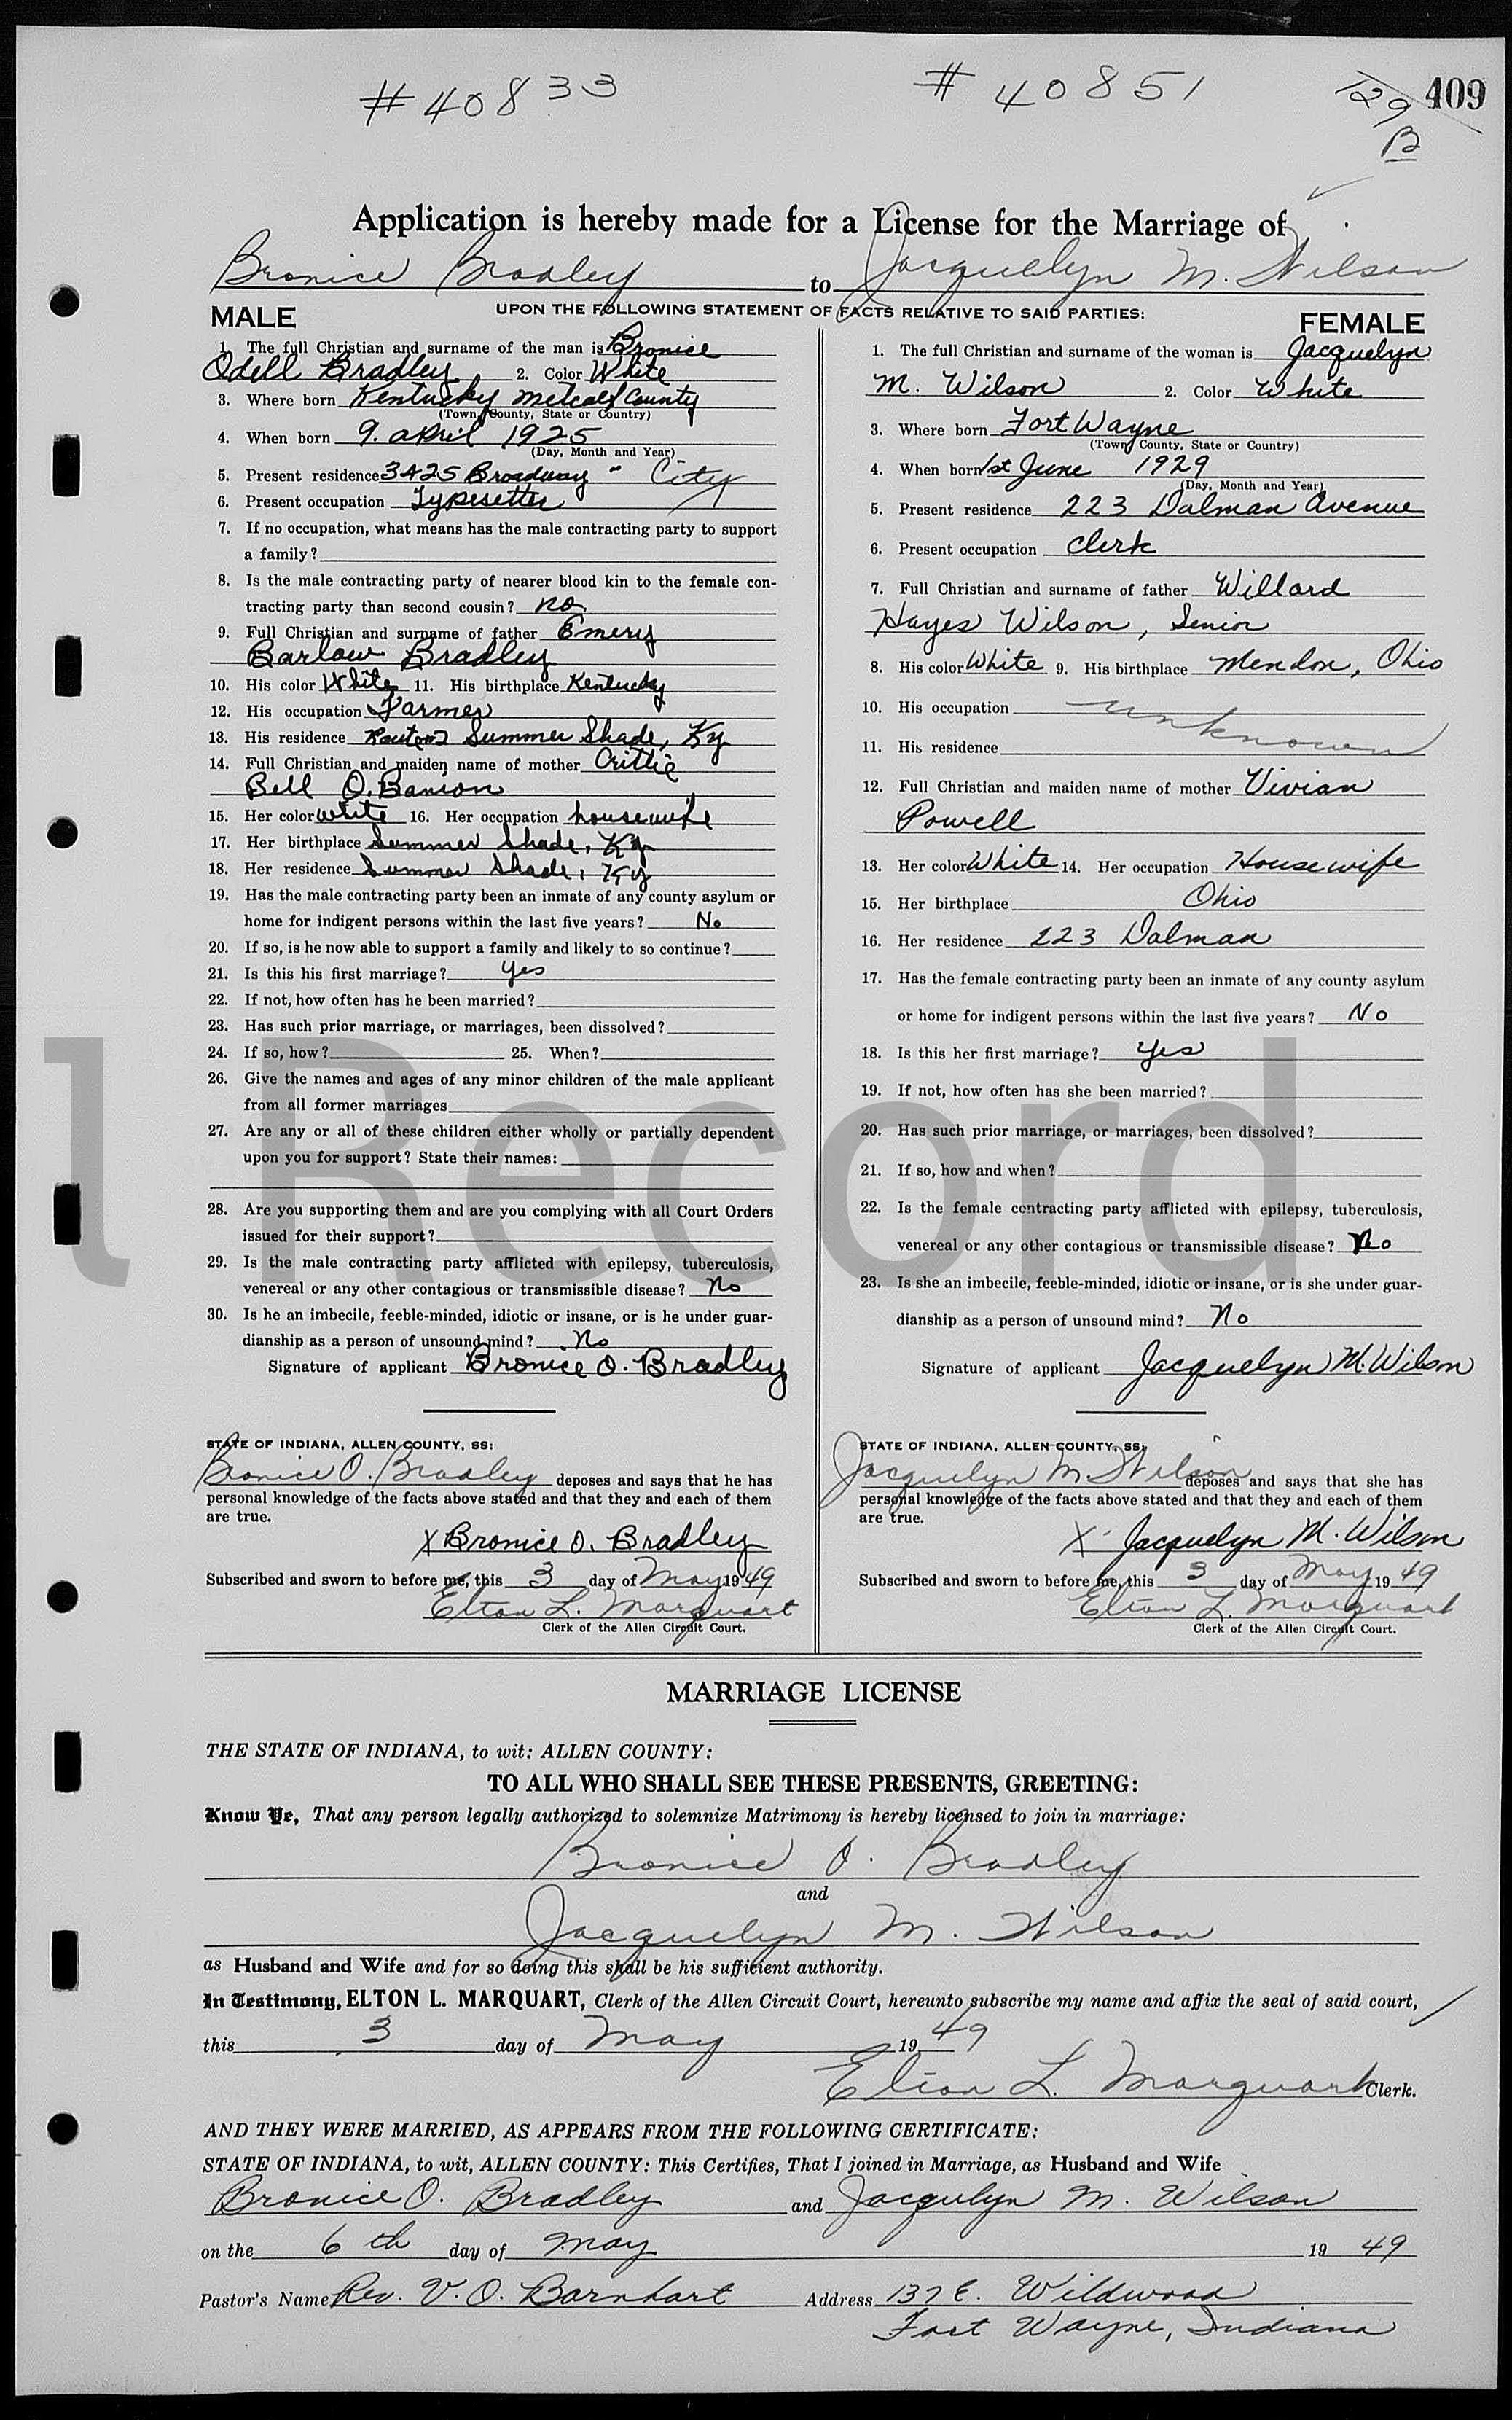 #40833 # 40851 129 409
B
Application is hereby made for a License for the Marriage of
Bronice Bradley to Jacquelyn M. Wilson
UPON THE FOLLOWING STATEMENT OF FACTS RELATIVE TO SAID PARTIES:
MALE
1. The full Christian and surname of the man is Bronice
Odell Bradley 2. Color White
3. Where born Kentucky Metcalf County
(Town, County, State or Country)
4. When born 9. april 1925
(Day, Month and Year)
5. Present residence 3425 Broadway - City
6. Present occupation Typesetter
7. If no occupation, what means has the male contracting party to support
a family?
8. Is the male contracting party of nearer blood kin to the female con-
tracting party than second cousin? no.
9. Full Christian and surname of father Emery
Barlow Bradley
10. His color White 11. His birthplace Kentucky
12. His occupation Farmer
13. His residence Summer Shade, Ky
14. Full Christian and maiden name of mother Crittie
Bell O.Banion
15. Her color white 16. Her occupation housewife
17. Her birthplace Summer Shade, Ky
18. Her residence Summer Shade, Ky
19. Has the male contracting party been an inmate of any county asylum or
home for indigent persons within the last five years? No
20. If so, is he now able to support a family and likely to so continue?
21. Is this his first marriage? yes
22. If not, how often has he been married?
23. Has such prior marriage, or marriages, been dissolved?
24. If so, how? 25. When?
26. Give the names and ages of any minor children of the male applicant
from all former marriages
27. Are any or all of these children either wholly or partially dependent
upon you for support? State their names:
28. Are you supporting them and are you complying with all Court Orders
issued for their support?
29. Is the male contracting party afflicted with epilepsy, tuberculosis,
venereal or any other contagious or transmissible disease? No
30. Is he an imbecile, feeble-minded, idiotic or insane, or is he under guar-
dianship as a person of unsound mind? No
Signature of applicant Bronice O. Bradley
STATE OF INDIANA, ALLEN COUNTY, SS:
Bronice O. Bradley deposes and says that he has
personal knowledge of the facts above stated and that they and each of them
are true.
X Bronice O. Bradley
Subscribed and sworn to before me, this 3 day of May 1949
Elton L. Marquart
Clerk of the Allen Circuit Court.
FEMALE
1. The full Christian and surname of the woman is Jacquelyn
M. Wilson 2. Color White
3. Where born Fort Wayne
(Town, County, State or Country)
4. When born 1st June 1929
(Day, Month and Year)
5. Present residence 223 Dalman Avenue
6. Present occupation Clerk
7. Full Christian and surname of father Willard
Hayes Wilson, Senior
8. His color White 9. His birthplace Mendon, Ohio
10. His occupation unknown
11. His residence
12. Full Christian and maiden name of mother Vivian
Powell
13. Her color White 14. Her occupation Housewife
15. Her birthplace Ohio
16. Her residence 223 Dalman
17. Has the female contracting party been an inmate of any county asylum
or home for indigent persons within the last five years? No
18. Is this her first marriage? yes
19. If not, how often has she been married?
20. Has such prior marriage, or marriages, been dissolved?
21. If so, how and when?
22. Is the female contracting party afflicted with epilepsy, tuberculosis,
venereal or any other contagious or transmissible disease? No
23. Is she an imbecile, feeble-minded, idiotic or insane, or is she under guar-
dianship as a person of unsound mind? No
Signature of applicant Jacquelyn M. Wilson
STATE OF INDIANA, ALLEN COUNTY, SS:
Jacquelyn M. Wilson deposes and says that she has
personal knowledge of the facts above stated and that they and each of them
are true.
X Jacquelyn M. Wilson
Subscribed and sworn to before me, this 3 day of May 1949
Elton L. Marquart
Clerk of the Allen Circuit Court.
l Record
MARRIAGE LICENSE
THE STATE OF INDIANA, to wit: ALLEN COUNTY:
TO ALL WHO SHALL SEE THESE PRESENTS, GREETING:
Know Ye, That any person legally authorized to solemnize Matrimony is hereby licensed to join in marriage:
Bronice O. Bradley
and
Jacquelyn M. Wilson
as Husband and Wife and for so doing this shall be his sufficient authority.
In Testimony, ELTON L. MARQUART, Clerk of the Allen Circuit Court, hereunto subscribe my name and affix the seal of said court,
this 3 day of May 1949
Elton L. Marquart Clerk.
AND THEY WERE MARRIED, AS APPEARS FROM THE FOLLOWING CERTIFICATE:
STATE OF INDIANA, to wit, ALLEN COUNTY: This Certifies, That I joined in Marriage, as Husband and Wife
Bronice O. Bradley and Jacqulyn M. Wilson
on the 6th day of May 1949
Pastor's Name Rev. V. O. Barnhart Address 137 E. Wildwood
Fort Wayne, Indiana